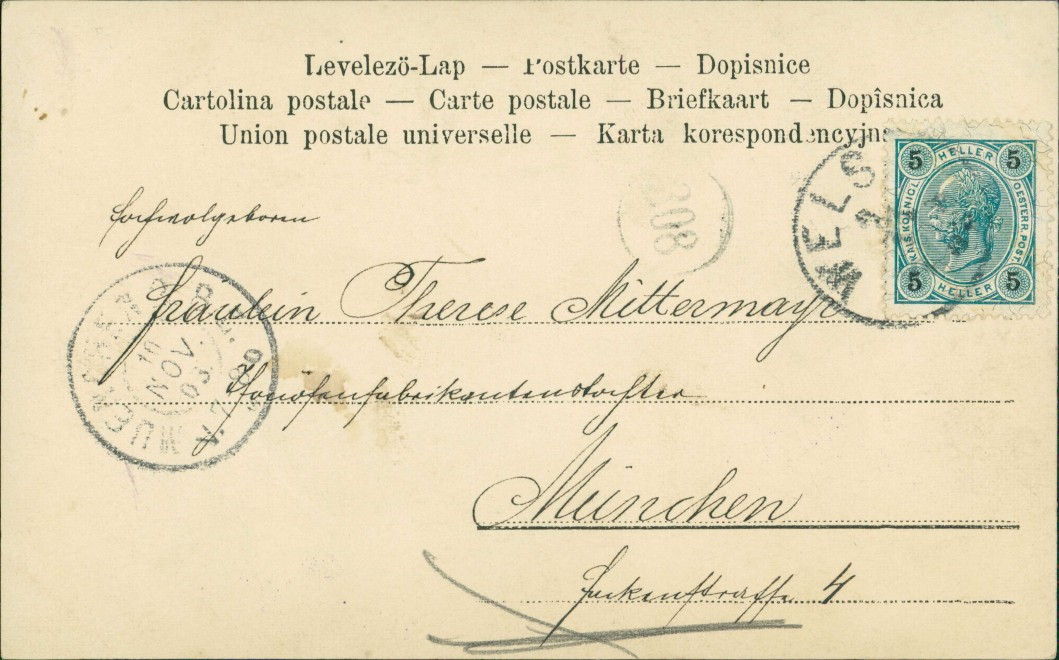 Levelezö-Lap — Postkarte — Dopisnice
Cartolina postale — Carte postale — Briefkaart — Dopîsnica
Union postale universelle — Karta korespondencyjna
5 HELLER 5
KAIS. KOENIGL. OESTERR. POST.
5 HELLER 5
WELS
208
Hochwolgeboren
Fräulein Therese Mittermayr
10
NOV.
03.
München
4